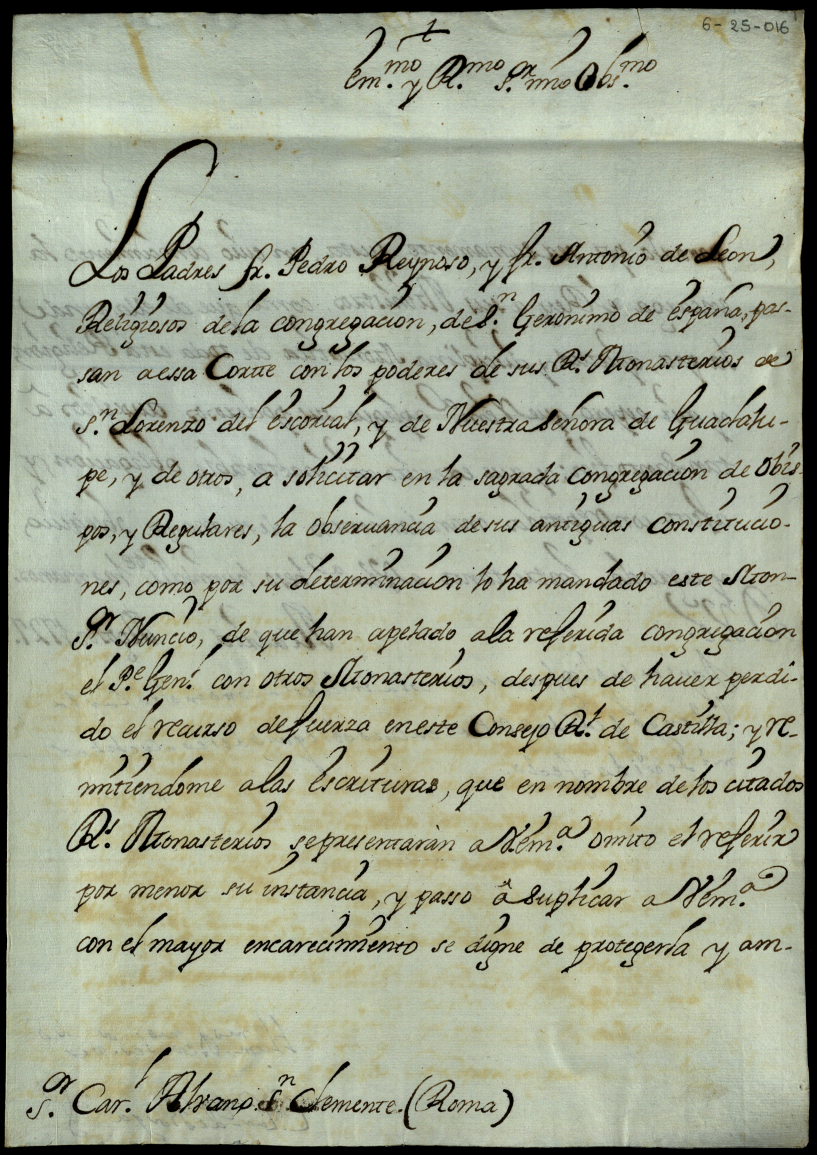 6-25-016
+
Em.mo y R.mo S.or mio Obs.mo
Los Padres fr. Pedro Reynoso, y fr. Antonio de Leon,
Religiosos de la congregacion, de S.n Geronimo de españa, pas-
san a essa Corte con los poderes de sus R.s Monasterios de
S.n Lorenzo del escorial, y de Nuestra señora de Guadalu-
pe, y de otros, a solicitar en la sagrada congregacion de obis-
pos, y Regulares, la observancia de sus antiguas constitucio-
nes, como por su determinacion lo ha mandado este Mon-
S.or Nuncio, de que han apelado a la referida congregacion
el P.e Gen.l con otros Monasterios, despues de haver perdi-
do el recurso de fuerza en este Consejo R.l de Castilla; y re-
mitiendome a las Escrituras, que en nombre de los citados
R.s Monasterios se presentaràn a VEm.a omito el referir
por menor su instancia, y passo à suplicar a VEm.a
con el mayor encarecimiento se digne de protegerla y am-
S.or Car.l Alvano. S.n Clemente. (Roma)